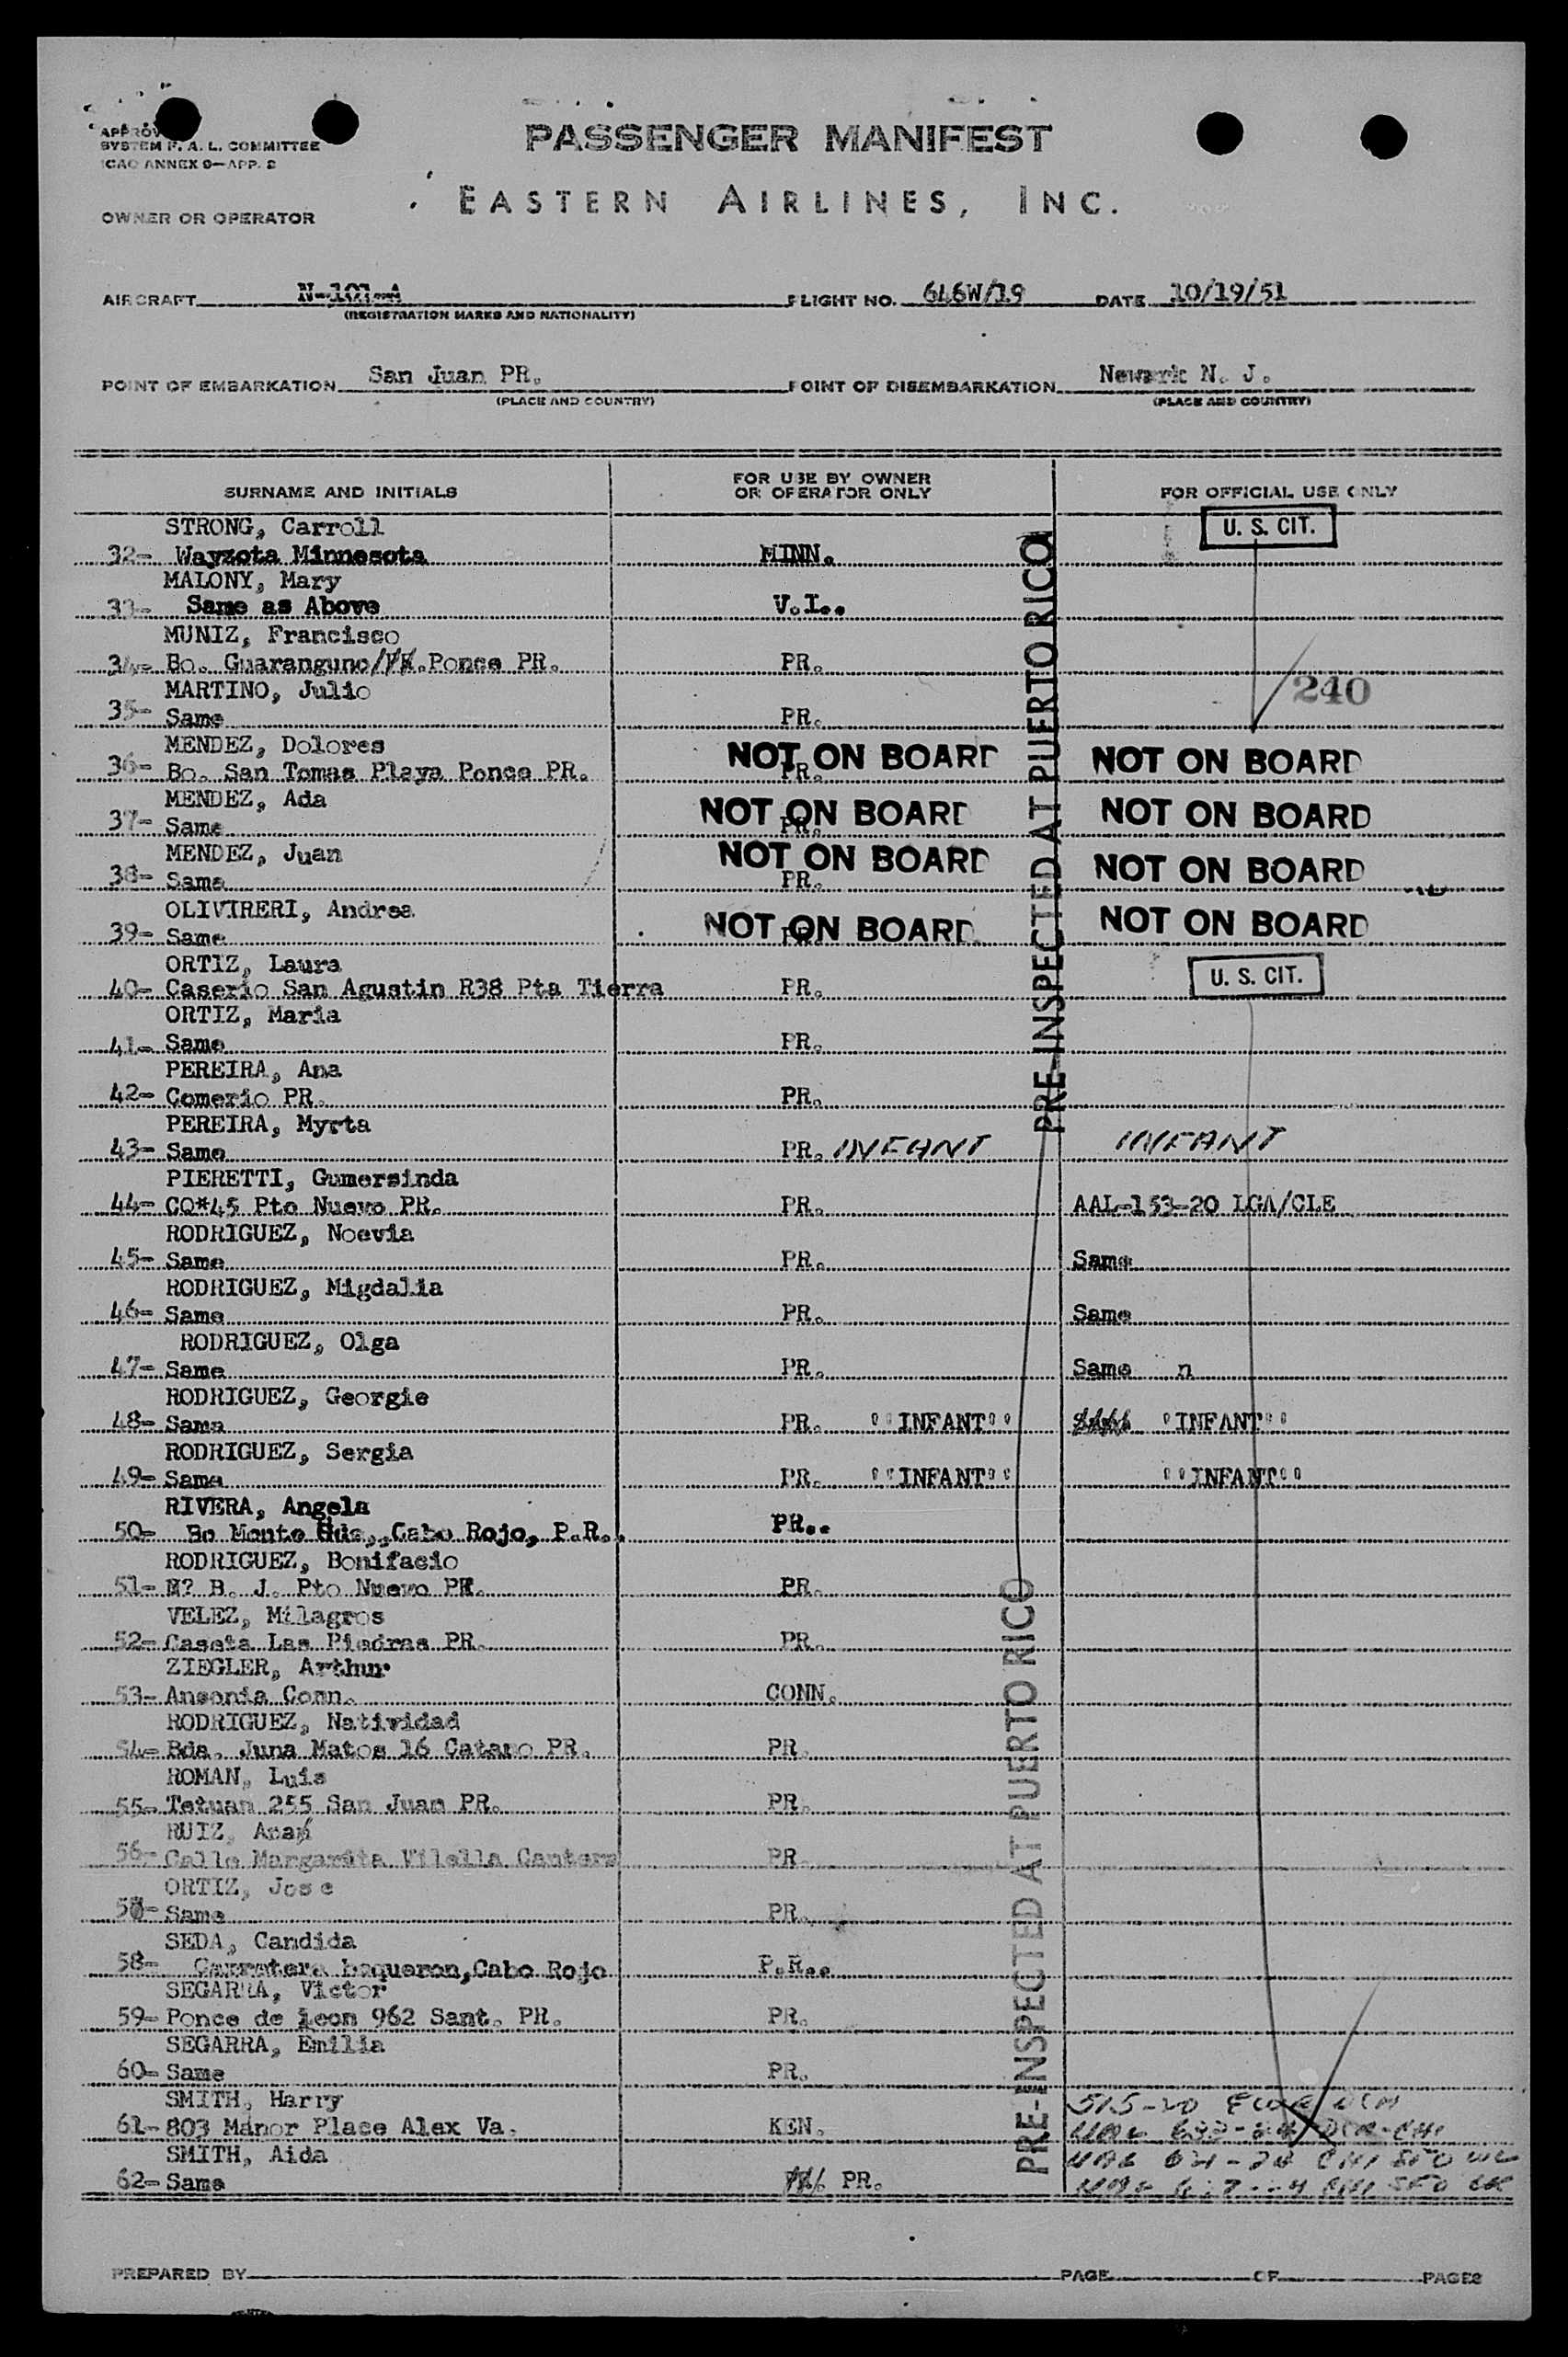 SYSTEM F. A. L. COMMITTEE
ICAO ANNEX 9—APP. 2
PASSENGER MANIFEST
EASTERN AIRLINES, INC.
OWNER OR OPERATOR
AIRCRAFT N-101-A FLIGHT NO. 646W/19 DATE 10/19/51
(REGISTRATION MARKS AND NATIONALITY)
POINT OF EMBARKATION San Juan PR. POINT OF DISEMBARKATION Newark N. J.
(PLACE AND COUNTRY) (PLACE AND COUNTRY)
SURNAME AND INITIALS FOR USE BY OWNER OR OPERATOR ONLY FOR OFFICIAL USE ONLY
STRONG, Carroll U. S. CIT.
32- Wayzota Minnesota MINN.
MALONY, Mary
33- Same as Above V.I..
MUNIZ, Francisco
34- Bo. Guaranguno/ Ponce PR. PR.
MARTINO, Julio 240
35- Same PR.
MENDEZ, Dolores NOT ON BOARD NOT ON BOARD
36- Bo. San Tomas Playa Ponce PR. PR.
MENDEZ, Ada NOT ON BOARD NOT ON BOARD
37- Same PR.
MENDEZ, Juan NOT ON BOARD NOT ON BOARD
38- Same PR.
OLIVIRERI, Andrea NOT ON BOARD NOT ON BOARD
39- Same
ORTIZ, Laura U. S. CIT.
40- Caserio San Agustin R38 Pta Tierra PR.
ORTIZ, Maria
41- Same PR.
PEREIRA, Ana
42- Comerio PR. PR.
PEREIRA, Myrta
43- Same PR. INFANT INFANT
PIERETTI, Gumersinda
44- CQ*45 Pto Nuevo PR. PR. AAL-153-20 LGA/CLE
RODRIGUEZ, Noevia
45- Same PR. Same
RODRIGUEZ, Migdalia
46- Same PR. Same
RODRIGUEZ, Olga
47- Same PR. Same n
RODRIGUEZ, Georgie
48- Same PR. ''INFANT'' 'INFANT''
RODRIGUEZ, Sergia
49- Same PR. ''INFANT'' ''INFANT''
RIVERA, Angela
50- Bo Monte Gde,,Cabo Rojo, P.R.. PR..
RODRIGUEZ, Bonifacio
51- M? B. J. Pto Nuevo PR. PR.
VELEZ, Milagros
52- Caseta Las Piedras PR. PR.
ZIEGLER, Arthur
53- Ansonia Conn. CONN.
RODRIGUEZ, Natividad
54- Bda. Juna Matos 16 Catano PR. PR.
ROMAN, Luis
55- Tetuan 255 San Juan PR. PR.
RUIZ, Ana
56- Calle Margarita Vilella Cantera PR
ORTIZ, Jose
57- Same PR.
SEDA, Candida
58- Carretera boqueron,Cabo Rojo P.R..
SEGARRA, Victor
59- Ponce de leon 962 Sant. PR. PR.
SEGARRA, Emilia
60- Same PR.
SMITH, Harry 515-20
61- 803 Manor Place Alex Va. KEN.
SMITH, Aida CHI SFO
62- Same PR. CHI SFO
PRE-INSPECTED AT PUERTO RICO
PRE-INSPECTED AT PUERTO RICO
PREPARED BY PAGE OF PAGES